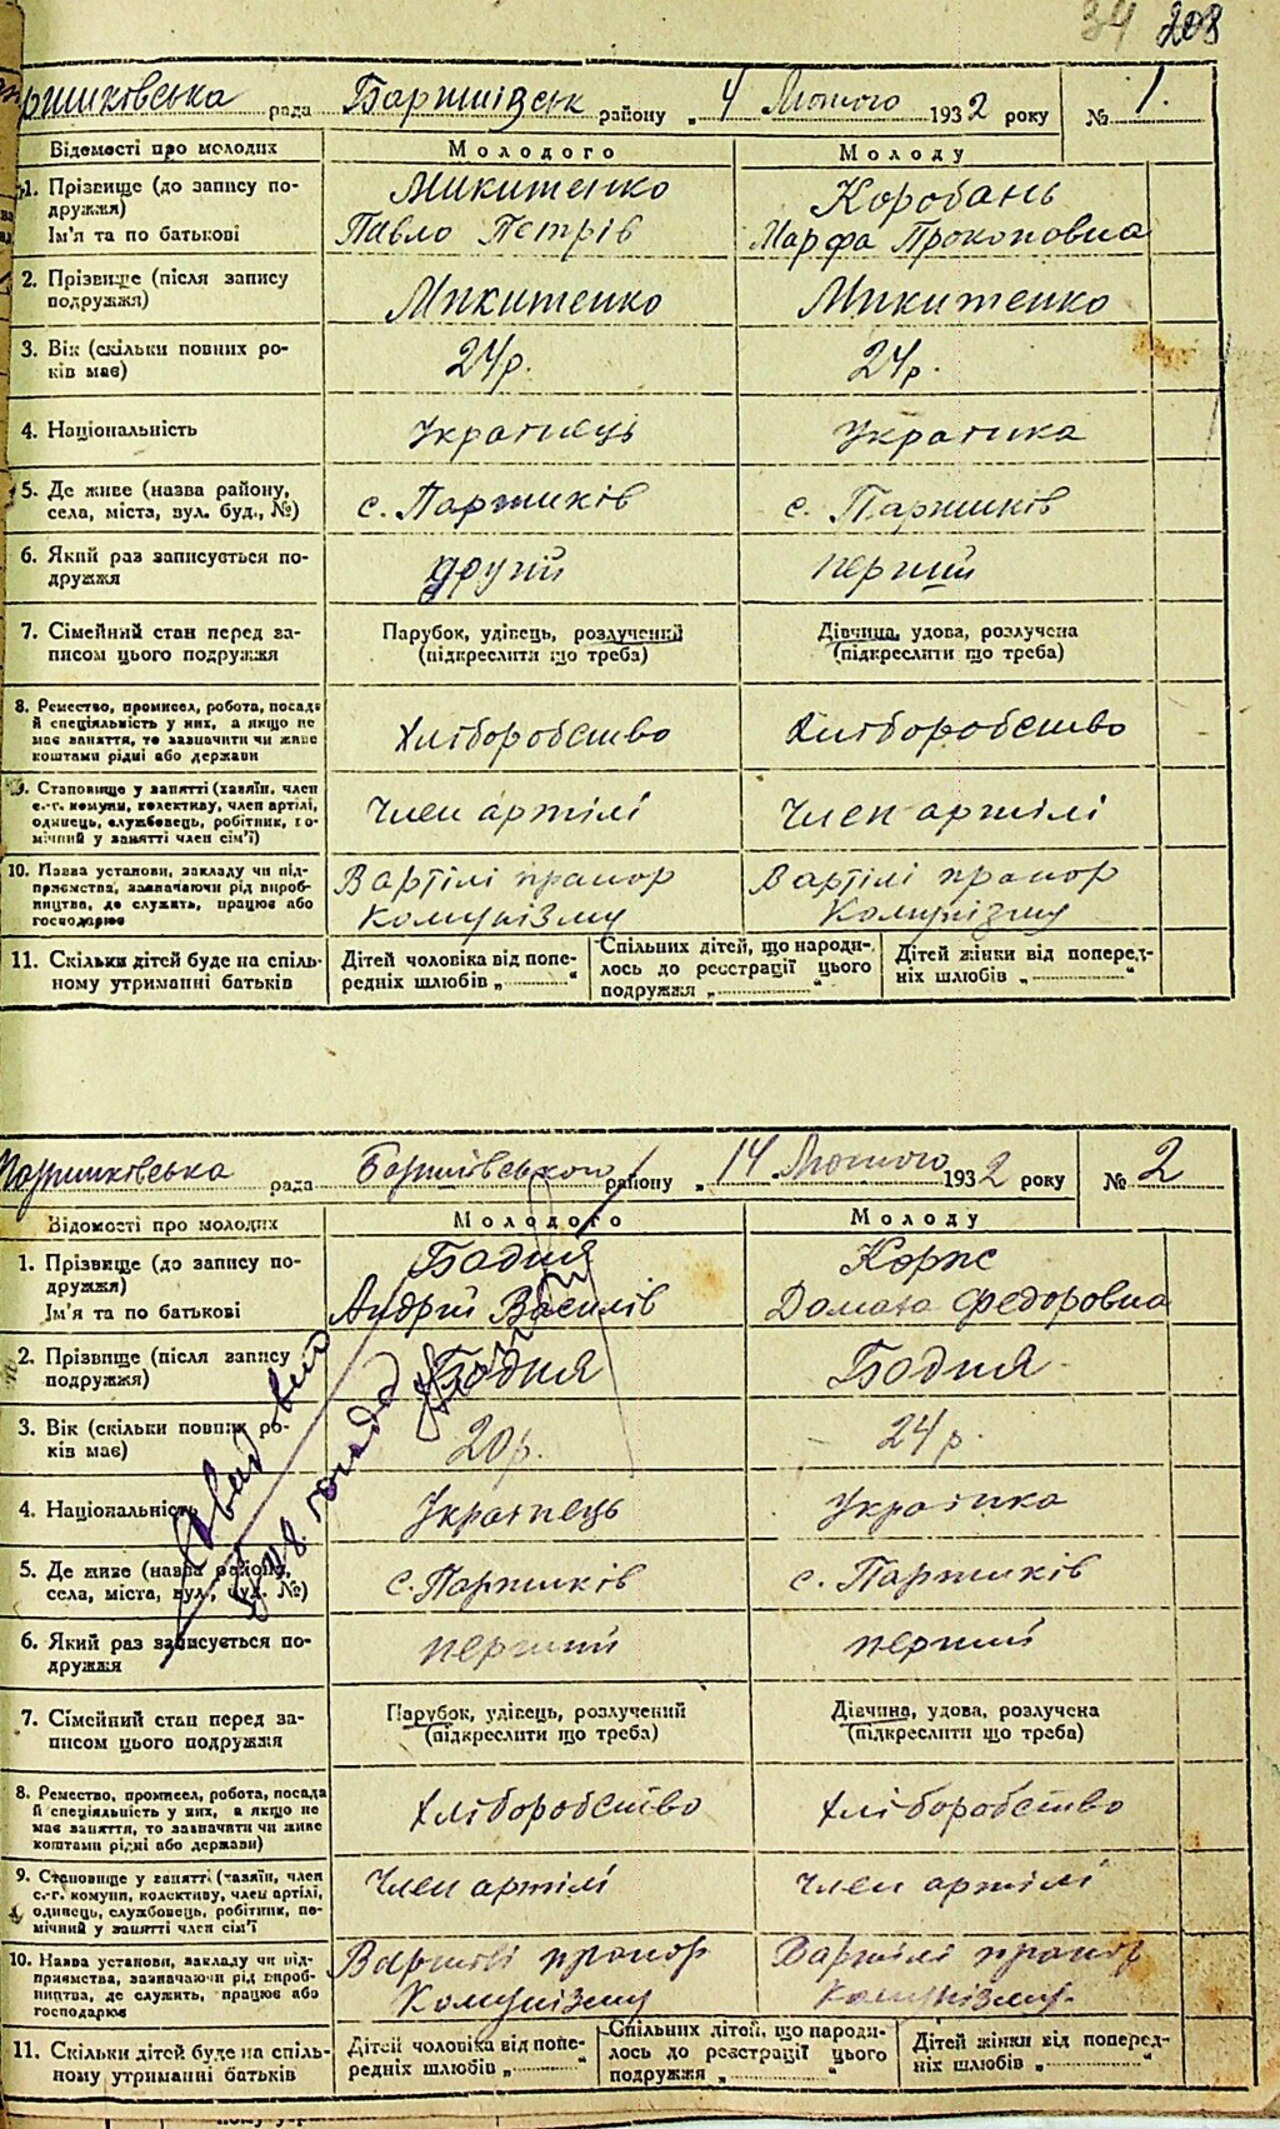 34 208
рада Баришівськ району „ 4 Лютого 1932 року № 1.
Відомості про молодих Молодого Молоду
1. Прізвище (до запису по- Микитенко Коробань
дружжя)
Ім'я та по батькові Павло Петрів Марфа Прокоповна
2. Прізвище (після запису
подружжя) Микитенко Микитенко
3. Вік (скільки повних ро- 24р. 24р.
ків має)
4. Національність Українець Українка
5. Де живе (назва району,
села, міста, вул. буд., №) с. Паришків с. Паришків
6. Який раз записується по- другий перший
дружжя
7. Сімейний стан перед за- Парубок, удівець, розлучений Дівчина, удова, розлучена
писом цього подружжя (підкреслити що треба) (підкреслити що треба)
8. Ремество, промисел, робота, посада
й спеціяльність у них, а якщо не
має заняття, то зазначити чи живе Хліборобство Хліборобство
коштами рідні або держави
9. Становище у занятті (хазяїн, член
с.-г. комуни, колективу, член артілі, Член артілі Член артілі
одинець, службовець, робітник, по-
мічний у занятті член сім'ї)
10. Назва установи, закладу чи під- Вартілі прапор Вартілі прапор
приємства, зазначаючи рід вироб-
ництва, де служить, працює або Комунізму Комунізму
господарює
11. Скільки дітей буде на спіль- Дітей чоловіка від попе- Спільних дітей, що народи- Дітей жінки від поперед-
ному утриманні батьків редніх шлюбів „ “ лось до реєстрації цього ніх шлюбів „ “
подружжя „ “
Паришківська рада Баришівського району „ 14 Лютого 1932 року № 2
Відомості про молодих Молодого Молоду
1. Прізвище (до запису по- Бодня Корж
дружжя)
Ім'я та по батькові Андрій Василів Домаха Федоровна
2. Прізвище (після запису Бодня Бодня
подружжя)
3. Вік (скільки повних ро- 20р. 24р.
ків має)
4. Національність Українець Українка
5. Де живе (назва району, с. Паришків с. Паришків
села, міста, вул., буд. №)
6. Який раз записується по- перший перший
дружжя
7. Сімейний стан перед за- Парубок, удівець, розлучений Дівчина, удова, розлучена
писом цього подружжя (підкреслити що треба) (підкреслити що треба)
8. Ремество, промисел, робота, посада
й спеціяльність у них, а якщо не Хліборобство Хліборобство
має заняття, то зазначити чи живе
коштами рідні або держави)
9. Становище у занятті (хазяїн, член Член артілі Член артілі
с.-г. комуни, колективу, член артілі,
одинець, службовець, робітник, по-
мічний у занятті член сім'ї
10. Назва установи, закладу чи під- Вартілі прапор Вартілі прапор
приємства, зазначаючи рід вироб-
ництва, де служить, працює або Комунізму Комунізму
господарює
11. Скільки дітей буде на спіль- Дітей чоловіка від попе- Спільних дітей, що народи- Дітей жінки від поперед-
ному утриманні батьків редніх шлюбів „ “ лось до реєстрації цього ніх шлюбів „ “
подружжя „ “